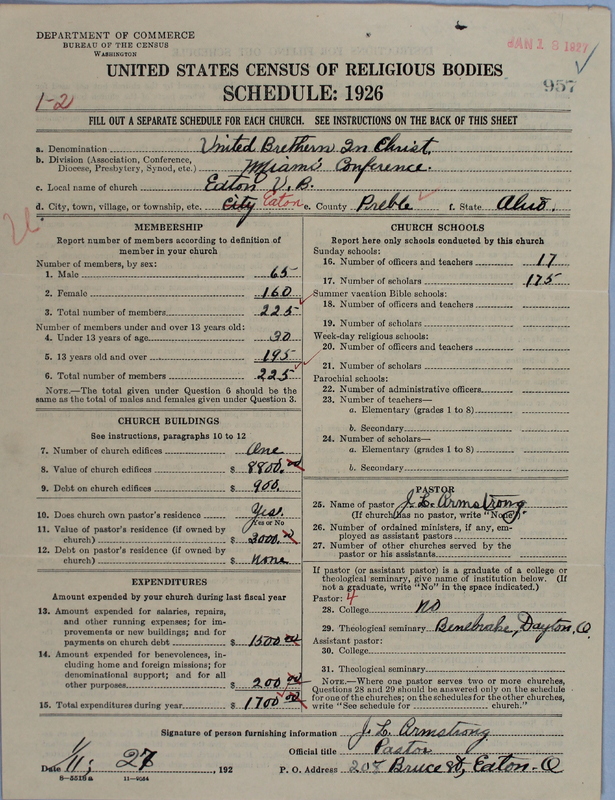 DEPARTMENT OF COMMERCE
BUREAU OF THE CENSUS
WASHINGTON
JAN 18 1927
UNITED STATES CENSUS OF RELIGIOUS BODIES
SCHEDULE: 1926
957
1-2
FILL OUT A SEPARATE SCHEDULE FOR EACH CHURCH. SEE INSTRUCTIONS ON THE BACK OF THIS SHEET
a. Denomination United Brethern In Christ.
b. Division (Association, Conference, Diocese, Presbytery, Synod, etc.) Miami Conference.
c. Local name of church Eaton U.B.
d. City, town, village, or township, etc. City Eaton e. County Preble f. State Ohio.
MEMBERSHIP
Report number of members according to definition of member in your church
Number of members, by sex:
1. Male 65
2. Female 160
3. Total number of members 225
Number of members under and over 13 years old:
4. Under 13 years of age 30
5. 13 years old and over 195
6. Total number of members 225
NOTE.—The total given under Question 6 should be the same as the total of males and females given under Question 3.
CHURCH BUILDINGS
See instructions, paragraphs 10 to 12
7. Number of church edifices One
8. Value of church edifices $ 8800.00
9. Debt on church edifices $ 900.
10. Does church own pastor's residence Yes.
Yes or No
11. Value of pastor's residence (if owned by church) $ 3000.00
12. Debt on pastor's residence (if owned by church) $ None
EXPENDITURES
Amount expended by your church during last fiscal year
13. Amount expended for salaries, repairs, and other running expenses; for improvements or new buildings; and for payments on church debt $ 1500 00
14. Amount expended for benevolences, including home and foreign missions; for denominational support; and for all other purposes $ 200 00
15. Total expenditures during year $ 1700 00
CHURCH SCHOOLS
Report here only schools conducted by this church
Sunday schools:
16. Number of officers and teachers 17
17. Number of scholars 175
Summer vacation Bible schools:
18. Number of officers and teachers
19. Number of scholars
Week-day religious schools:
20. Number of officers and teachers
21. Number of scholars
Parochial schools:
22. Number of administrative officers
23. Number of teachers—
a. Elementary (grades 1 to 8)
b. Secondary
24. Number of scholars—
a. Elementary (grades 1 to 8)
b. Secondary
PASTOR
25. Name of pastor J. L. Armstrong.
(If church has no pastor, write "None")
26. Number of ordained ministers, if any, employed as assistant pastors
27. Number of other churches served by the pastor or his assistants
If pastor (or assistant pastor) is a graduate of a college or theological seminary, give name of institution below. (If not a graduate, write "No" in the space indicated.)
Pastor: 4
28. College No
29. Theological seminary Bonebrake, Dayton, O.
Assistant pastor:
30. College
31. Theological seminary
NOTE.—Where one pastor serves two or more churches, Questions 28 and 29 should be answered only on the schedule for one of the churches; on the schedules for the other churches, write "See schedule for church."
Signature of person furnishing information J. L. Armstrong
Official title Pastor
Date 1/11; 27, 192 P. O. Address 207 Bruce St, Eaton-O
8-5518a 11-9054